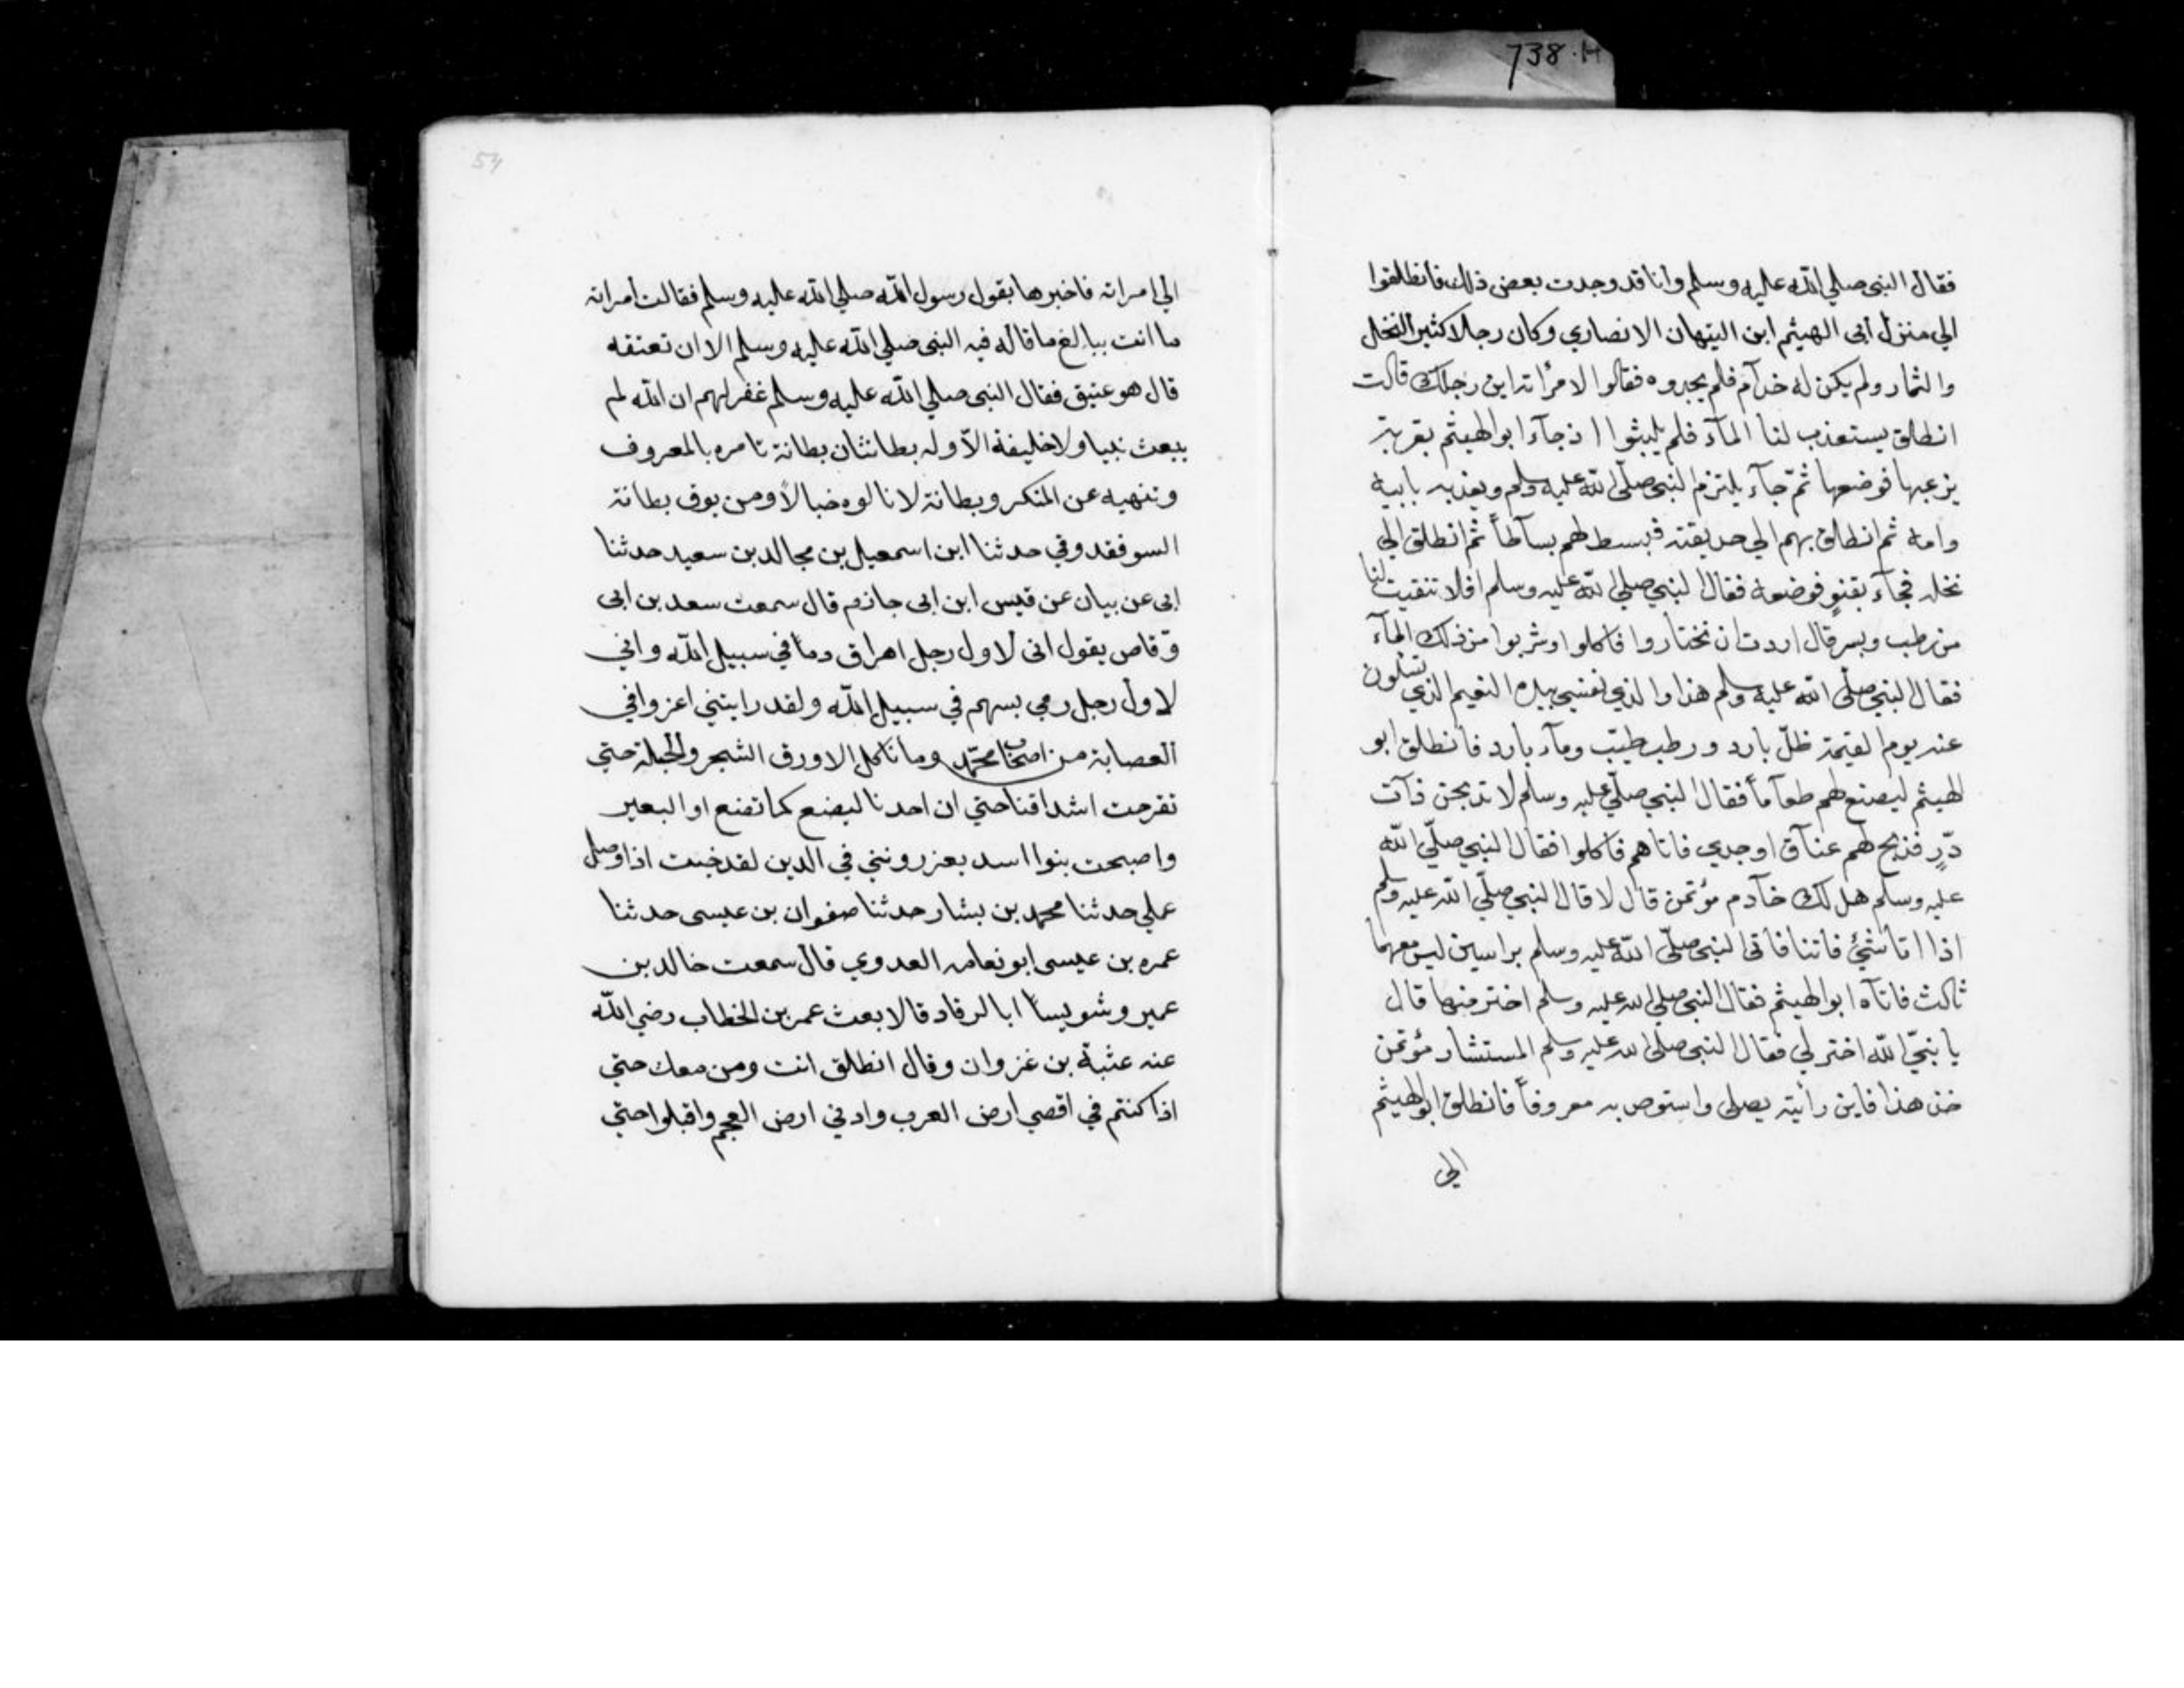 738.H
فقال النبى صلي الله عليه وسلم وأنا قد وجدت بعض ذلك فانطلقوا
الي منزل أبى الهيثم ابن التيهان الانصاري وكان رجلا كثير النخل
والثمار ولم يكن له خدآم فلم يجدوه فقالوا لامرأته اين رجلك قالت
انطلق يستعذب لنا المآء فلم يلبثوا اذجآء ابو الهيثم بقربة
يزعبها فوضعها ثمّ جآء يلتزم النبى صلّى الله عليه وسلم ويفديه بابيه
وامه ثم انطلق بهم الي حديقته فبسط لهم بسآطاً ثم انطلق الي
نخله فجآء بقنوٍ فوضعه فقال النبي صلي الله عليه وسلم افلا تنقيت لنا
من رطب وبسر قال اردت ان تختاروا فاكلوا وشربوا من ذلك المآء
فقال النبى صلّى الله عليه وسلم هذا والذي نفسي بيده النعيم الذي تسٔلون
عنه يوم القيمة ظلّ بارد ورطب طيّب ومآء بارد فانطلق ابو
لهيثم ليصنع لهم طعآماً فقال النبي صلّي عليه وسلم لا تذبحن ذآت
درٍّ فذبح لهم عنآق اوجدي فاتاهم فاكلوا فقال النبي صلّي الله
عليه وسلم هل لك خآدم مؤتمن قال لا قال النبي صلّي الله عليه وسلم
اذا اتا شئ فاتنا فاتى النبى صلّى الله عليه وسلم براسين ليس معهما
ثالث فاتآه ابو الهيثم فقال النبى صلي الله عليه وسلم اختر منهما قال
يا نبيّ الله اختر لي فقال النبى صلى الله عليه وسلم المستشار مؤتمن
خذ هذا فاين رأيته يصلى واستوص به معروفاً فانطلق ابو الهيثم
الي
54
الي امراته فاخبرها بقول رسول الله صلي الله عليه وسلم فقالت امراته
ما انت ببالغ ما قاله فيه النبى صلي الله عليه وسلم الا ان تعتقه
قال هو عتيق فقال النبى صلي الله عليه وسلم غفر لهم ان الله لم
يبعث نبيا ولا خليفة الاّ وله بطانتان بطانة تامره بالمعروف
وتنهيه عن المنكر وبطانة لا تالوه خبالاً ومن يوق بطانة
السو فقد وقي حدثنا ابن اسمعيل بن مجالد بن سعيد حدثنا
ابى عن بيان عن قيس ابن ابى حازم قال سمعت سعد بن ابى
وقاص يقول انى لاول رجل اهراق دماً في سبيل الله واني
لاول رجل رمي بسهم في سبيل الله ولقد رايتني اغزوا في
العصابة من اصحاب محمّد وما ناكل الا ورق الشجر والحبلة حتي
تقرحت اشداقنا حتي ان احدنا ليضع كما تضع او البعير
واصبحت بنوا اسد يعزرونني في الدين لقد خبت اذا وضل
عملي حدثنا محمد بن بشار حدثنا صفوان بن عيسى حدثنا
عمره بن عيسى ابو نعامه العدوي قال سمعت خالد بن
عمير وشويساً ابا الرقاد قالا بعث عمر بن الخطاب رضي الله
عنه عتبة بن غزوان وقال انطلق انت ومن معك حتي
اذا كنتم في اقصي ارض العرب وادني ارض العجم واقبلوا حتي